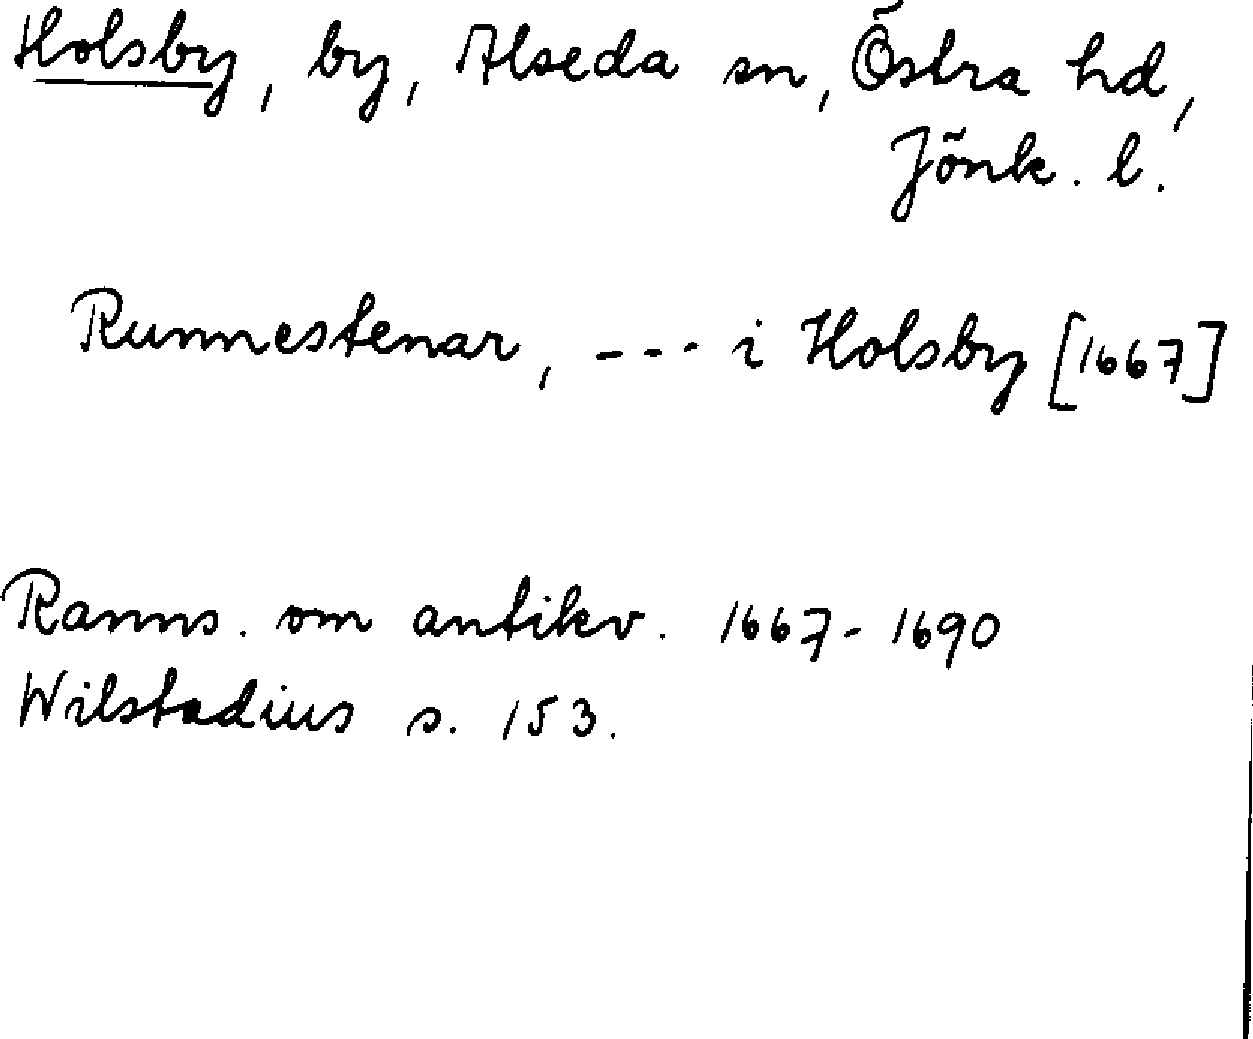 Holsby, by, Alseda sn, Östra hd,
Jönk. l.
Runnestenar, --- i Holsby [1667]
Ranns. om antikv. 1667-1690
Wilstadius s. 153.